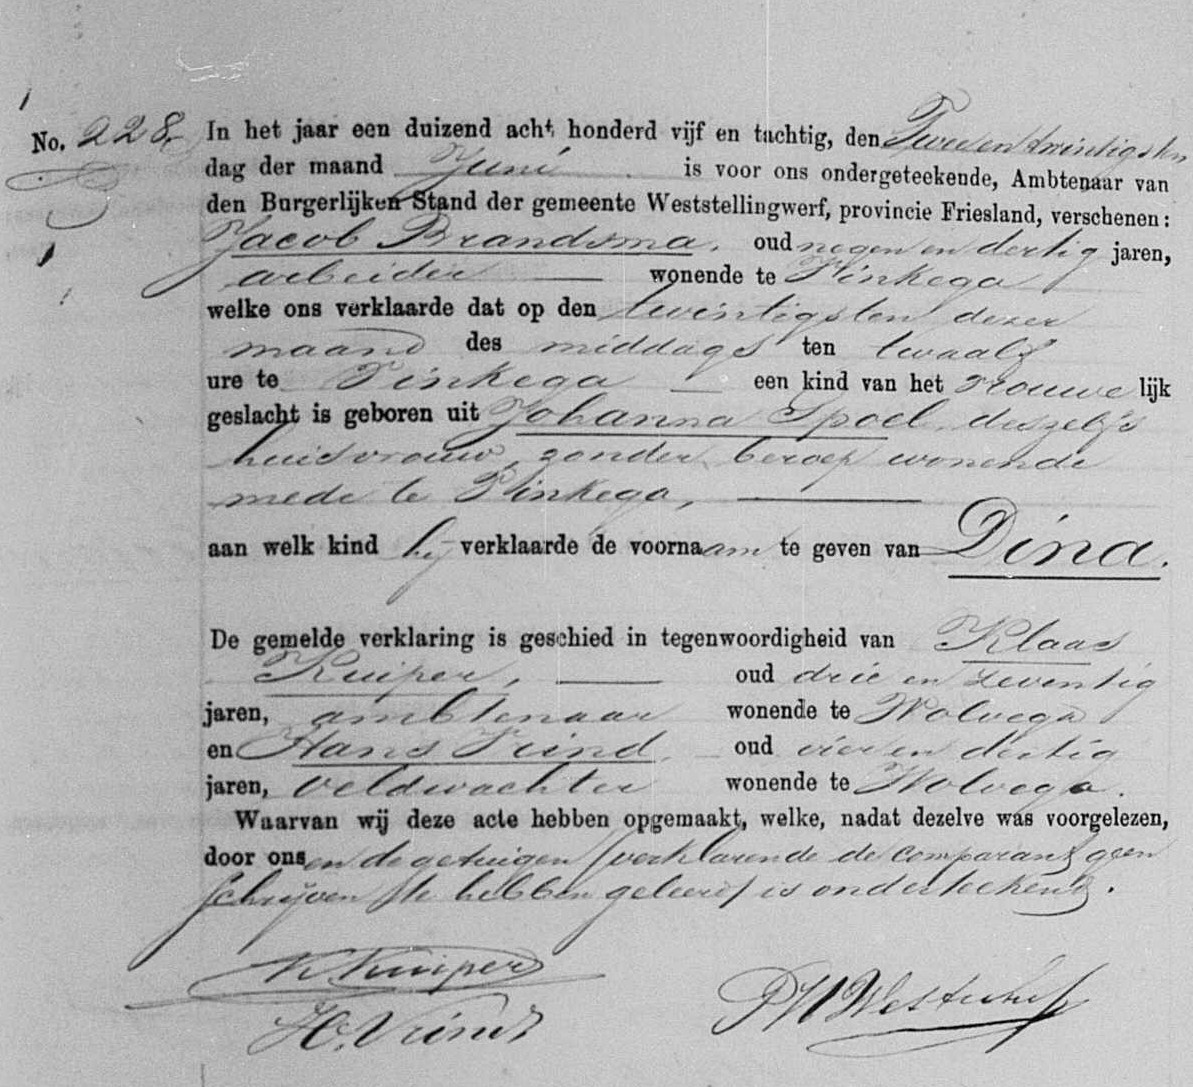 No. 228. In het jaar een duizend acht honderd vijf en tachtig, den Tweeentwintigsten
dag der maand Juni is voor ons ondergeteekende, Ambtenaar van
den Burgerlijken Stand der gemeente Weststellingwerf, provincie Friesland, verschenen:
Jacob Brandsma, oud negen en dertig jaren,
arbeider wonende te Finkega
welke ons verklaarde dat op den twintigsten dezer
maand des middags ten twaalf
ure te Finkega een kind van het vrouwelijk
geslacht is geboren uit Johanna Spoel deszelfs
huisvrouw, zonder beroep wonende
mede te Finkega,
aan welk kind hij verklaarde de voornaam te geven van Dina.
De gemelde verklaring is geschied in tegenwoordigheid van Klaas
Kuiper, oud drie en zeventig
jaren, ambtenaar wonende te Wolvega
en Hans Vrind, oud vier en dertig
jaren, veldwachter wonende te Wolvega.
Waarvan wij deze acte hebben opgemaakt, welke, nadat dezelve was voorgelezen,
door ons en de getuigen (verklarende de comparant geen
schrijven te hebben geleerd) is onderteekend.
K Kuiper
H. Vrind
PW Westerhof